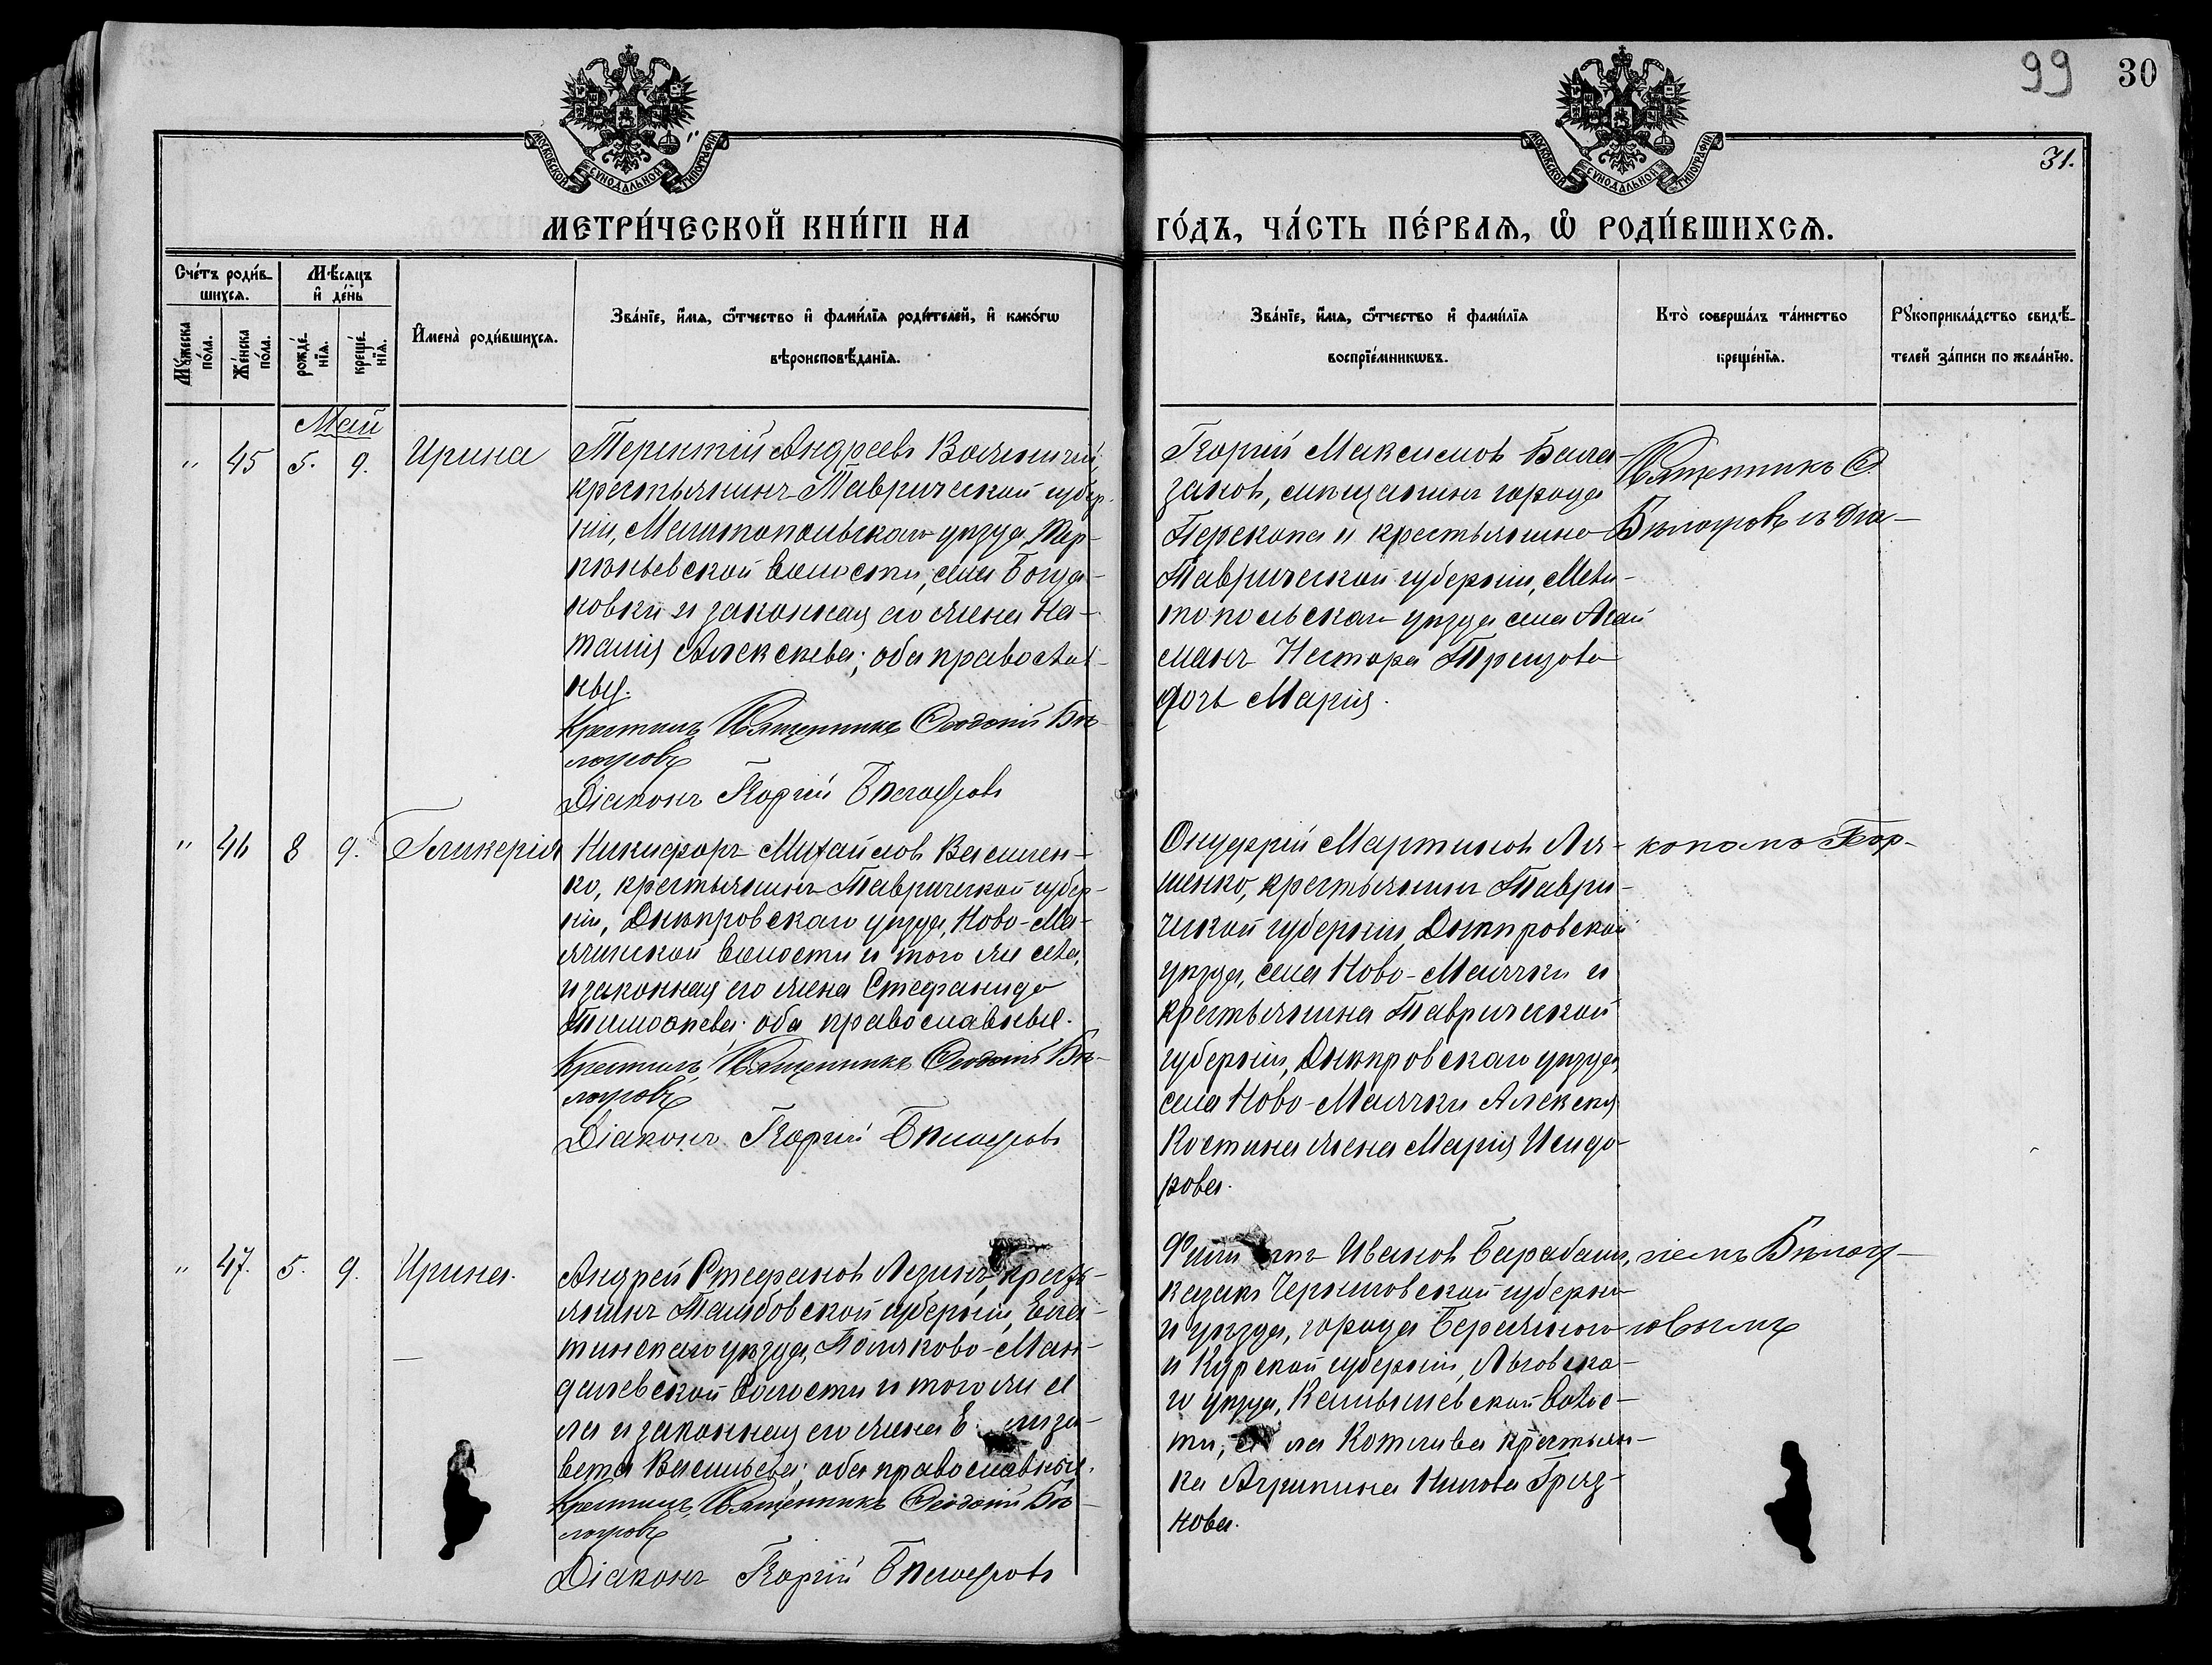 99 30
31.
МОСКОВСКОЙ СѴНОДАЛЬНОЙ ТИПОГРАФІИ
МОСКОВСКОЙ СѴНОДАЛЬНОЙ ТИПОГРАФІИ
МЕТРИ́ЧЕСКОЙ КНИ́ГИ НА ГО́ДЪ, ЧА́СТЬ ПЕ́РВАѦ, Ѡ҆ РОДИ́ВШИХСѦ.
Сче́тъ роди́в-
шихсѧ.
Мꙋ́жеска по́ла.
Же́нска по́ла.
Мѣ́сѧцъ
и҆ де́нь
рожде́-нїѧ.
креще́-нїѧ.
И҆мена̀ роди́вшихсѧ.
Зва́нїе, и҆́мѧ, ѻ҆́тчество и҆ фами́лїѧ роди́телей, и҆ како́гѡ
вѣроисповѣ́данїѧ.
Зва́нїе, и҆́мѧ, ѻ҆́тчество и҆ фами́лїѧ
воспрїе́мникѡвъ.
Кто̀ соверша́лъ та́инство
креще́нїѧ.
Рꙋкоприкла́дство свидѣ́-
телей за́писи по жела́нїю.
Май
" 45 5. 9. Ирина
Терентій Андреевъ
крестьянинъ Таврической губер-
ніи, Мелитопольскаго уѣзда,
волости, села Богда-
новки и законная его жена На-
талія Алексѣева; оба православ-
ные.
Крестилъ Священникъ Ѳеодосій Бѣ-
логуровъ
Діаконъ Георгій Бѣлогуровъ
Георгій Максимовъ Бала-
заковъ, мѣщанинъ города
Перекопа и крестьянина
Таврической губерніи, Мели-
топольскаго уѣзда села Агай
манъ Нестора
дочь Марія.
Священникъ Ѳ.
Бѣлогуровъ съ діа-
" 46 8 9. Гликерія
Никифоръ Михайловъ Василен-
ко, крестьянинъ Таврической губер-
ніи, Днѣпровскаго уѣзда, Ново-Ма-
ячинской волости и того же села,
и законная его жена Стефанида
Тимоѳеева; оба православные.
Крестилъ Священникъ Ѳеодосій Бѣ-
логуровъ
Діаконъ Георгій Бѣлогуровъ
Онуфрій Мартиновъ Ля-
шенко, крестьянинъ Таври-
ческой губерніи Днѣпровскаго
уѣзда, села Ново-Маячки и
крестьянина Таврической
губерніи, Днѣпровскаго уѣзда,
села Ново-Маячки Алексѣя
Костина жена Марія Исидо-
рова.
кономъ Геор-
" 47. 5. 9. Ирина.
Андрей Стефановъ Лезинъ, кресть-
янинъ Тамбовской губерніи, Ела-
тинскаго уѣзда, Поляково-Май-
данѣвской волости и того же се
ла и законная его жена Е лиза-
вета Васильева; оба православные.
Крестилъ Священникъ Ѳеодосій Бѣ-
логуровъ
Діаконъ Георгій Бѣлогуровъ
Фили ппъ Ивановъ Барабашъ,
казакъ Черниговской губерніи
и уѣзда, города Березнаго
и Курской губерніи, Льговска-
го уѣзда, волос-
ти, се ла Котлива крестьян-
ка Агрипина Нилова Гряз-
нова.
гіемъ Бѣлогу-
ровымъ